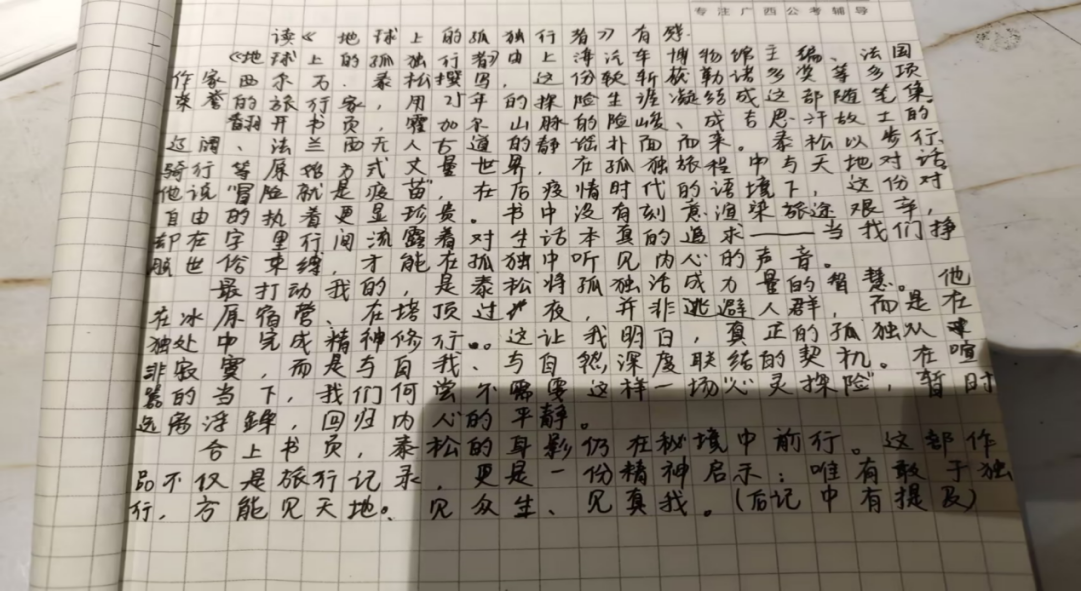 专注广西公考辅导
读《地球上的孤独行者》有感
《地球上的孤独行者》由上海汽车博物馆主编、法国
作家西尔万·泰松撰写,这份较斩获勒诸多奖等多项
荣誉的旅行家,用25年的探险生涯凝结成这部随笔集。
翻开书页,霍加尔山脉的险峻、成吉思汗故土的
辽阔、法兰西无人古道的静谧扑面而来。泰松以步行、
骑行等原始方式丈量世界,在孤独旅程中与天地对话
他说"冒险就是疫苗",在后疫情时代的语境下,这份对
自由的执着更显珍贵。书中没有刻意渲染旅途艰辛,
却在字里行间流露着对生活本真的追求——当我们挣
脱世俗束缚,才能在孤独中听见内心的声音。
最打动我的,是泰松将孤独活成力量的智慧。他
在冰原宿营、在塔顶过夜,并非逃避人群,而是在
独处中完成精神修行。这让我明白,真正的孤独从来
非寂寞,而是与自我、与自然深度联结的契机。在喧
嚣的当下,我们何尝不需要这样一场"心灵探险",暂时
远离浮躁,回归内心的平静。
合上书页,泰松的身影仍在秘境中前行。这部作
品不仅是旅行记录,更是一份精神启示:唯有敢于独
行,方能见天地、见众生、见真我。(后记中有提及)